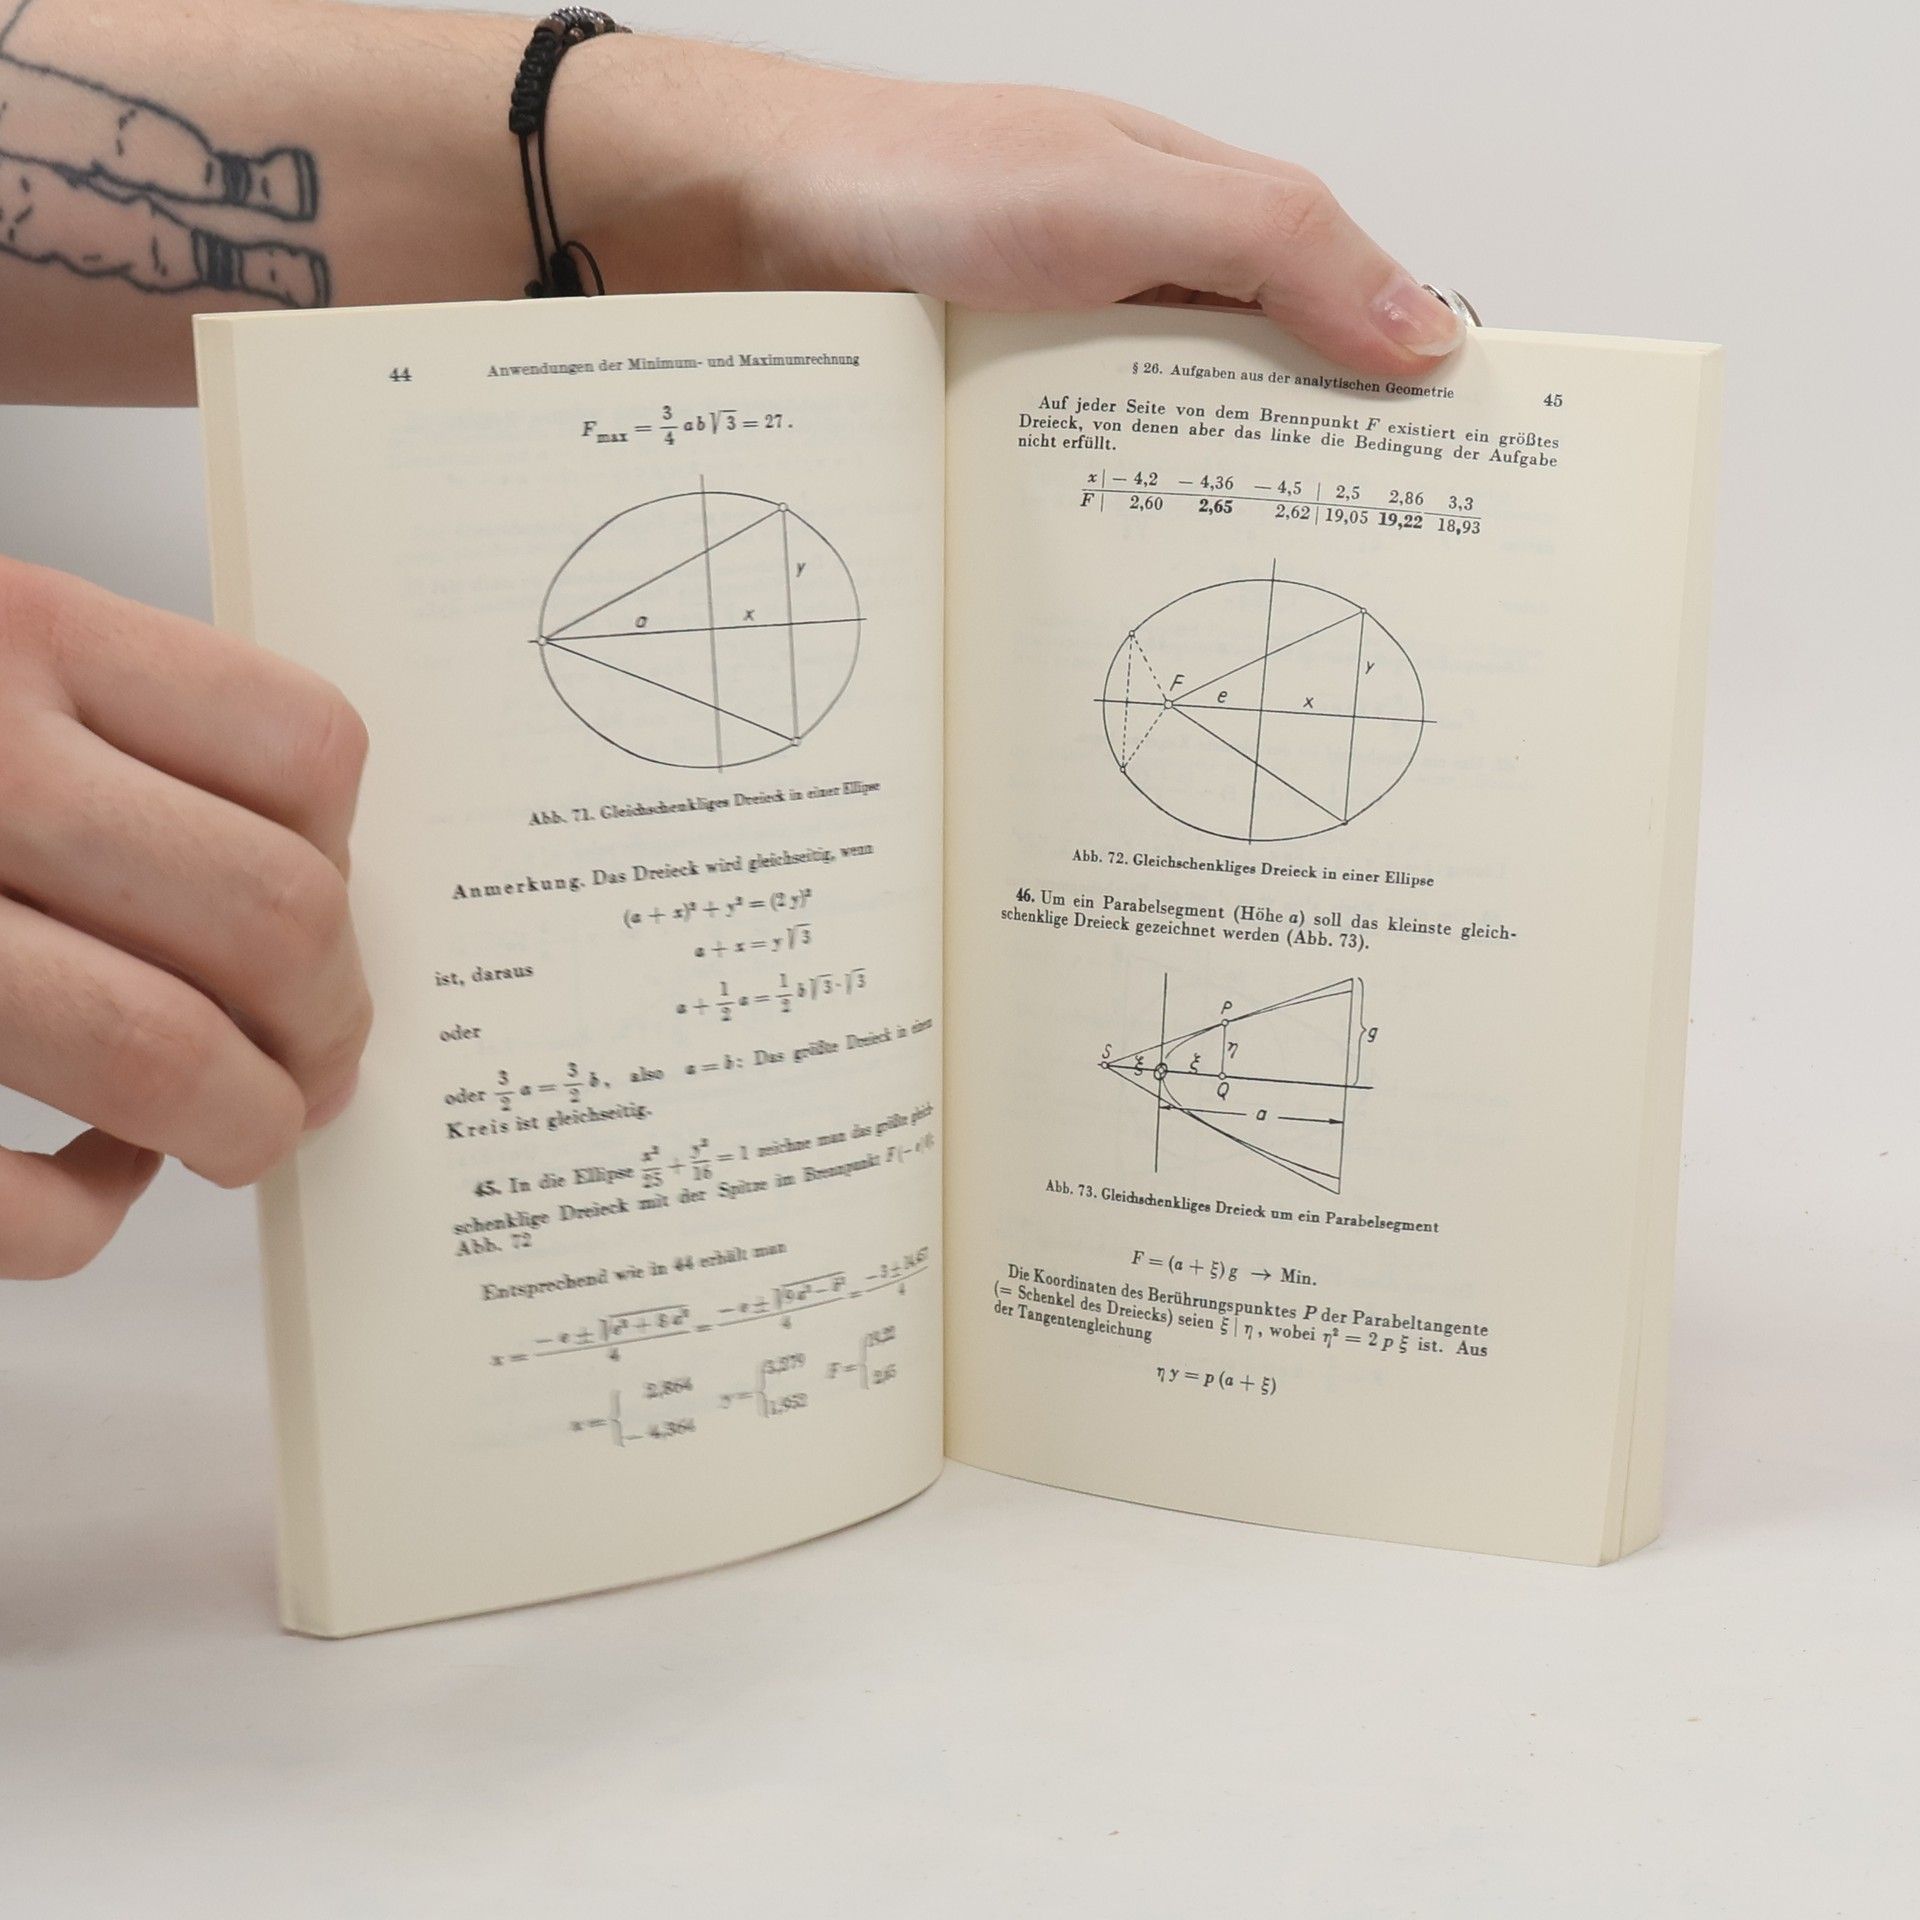 44 Anwendungen der Minimum- und Maximumrechnung
F_max = 3/4 ab√3 = 27.
y
a x
Abb. 71. Gleichschenkliges Dreieck in einer Ellipse
Anmerkung. Das Dreieck wird gleichseitig, wenn
(a + x)² + y² = (2 y)²
a + x = y√3
ist, daraus
a + 1/2 a = 1/2 b√3 · √3
oder
oder 3/2 a = 3/2 b, also a = b: Das größte Dreieck in einem
Kreis ist gleichseitig.
45. In die Ellipse x²/25 + y²/16 = 1 zeichne man das größte gleich-
schenklige Dreieck mit der Spitze im Brennpunkt F(− e | 0);
Abb. 72
Entsprechend wie in 44 erhält man
x = (− e ± √(e² + 8 a²))/4 = (− e ± √(9 e² − b²))/4 = (−3 ± 14,457)/4
x = { 2,864 y = { 3,279 F = { 19,22
− 4,364 1,952 2,65
§ 26. Aufgaben aus der analytischen Geometrie 45
Auf jeder Seite von dem Brennpunkt F existiert ein größtes
Dreieck, von denen aber das linke die Bedingung der Aufgabe
nicht erfüllt.
x | − 4,2 − 4,36 − 4,5 | 2,5 2,86 3,3
F | 2,60 2,65 2,62 | 19,05 19,22 18,93
y
F e x
Abb. 72. Gleichschenkliges Dreieck in einer Ellipse
46. Um ein Parabelsegment (Höhe a) soll das kleinste gleich-
schenklige Dreieck gezeichnet werden (Abb. 73).
P
g
S ξ ξ η
Q
a
Abb. 73. Gleichschenkliges Dreieck um ein Parabelsegment
F = (a + ξ) g → Min.
Die Koordinaten des Berührungspunktes P der Parabeltangente
(= Schenkel des Dreiecks) seien ξ | η, wobei η² = 2 p ξ ist. Aus
der Tangentengleichung
η y = p (a + ξ)